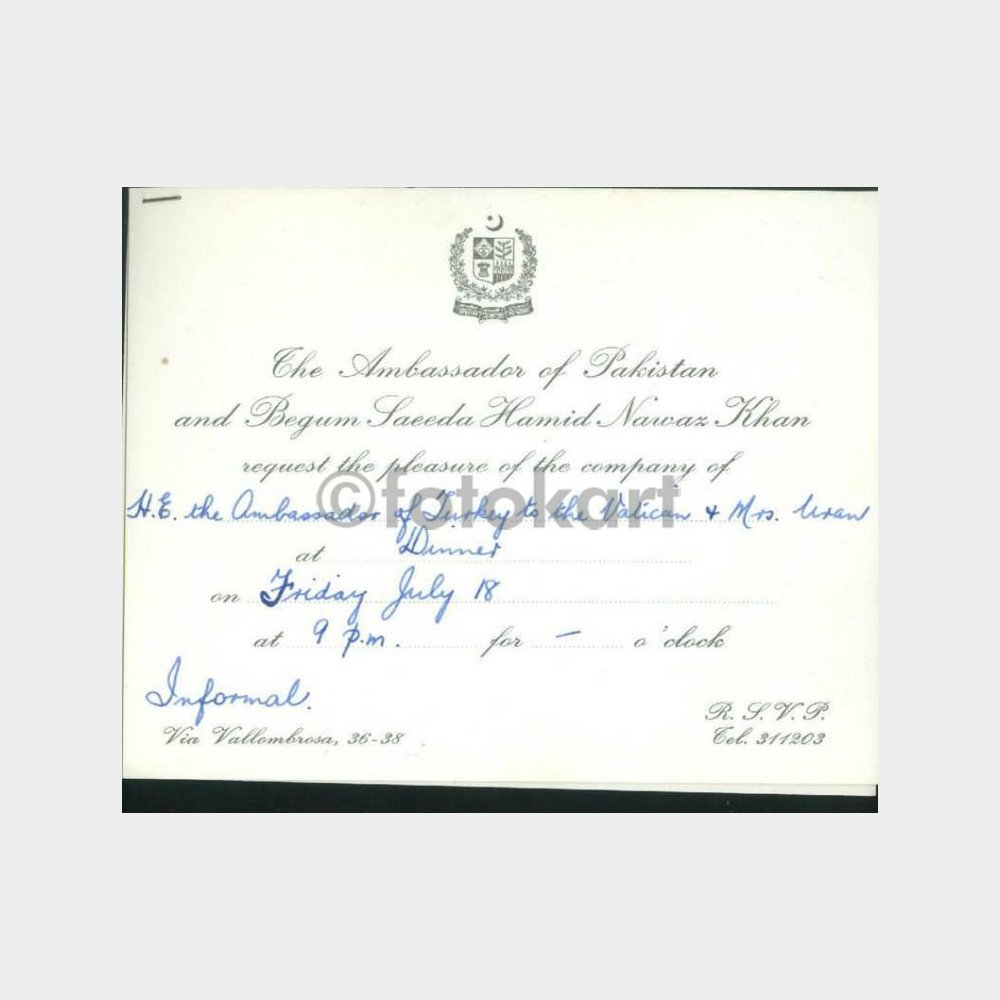 The Ambassador of Pakistan
and Begum Saeeda Hamid Nawaz Khan
request the pleasure of the company of
©fotokart
H.E. the Ambassador of Turkey to the Vatican & Mrs. Uran
at Dinner
on Friday July 18
at 9 p.m. for — o'clock
Informal.
R. S. V. P.
Via Vallombrosa, 36-38
Tel. 311203